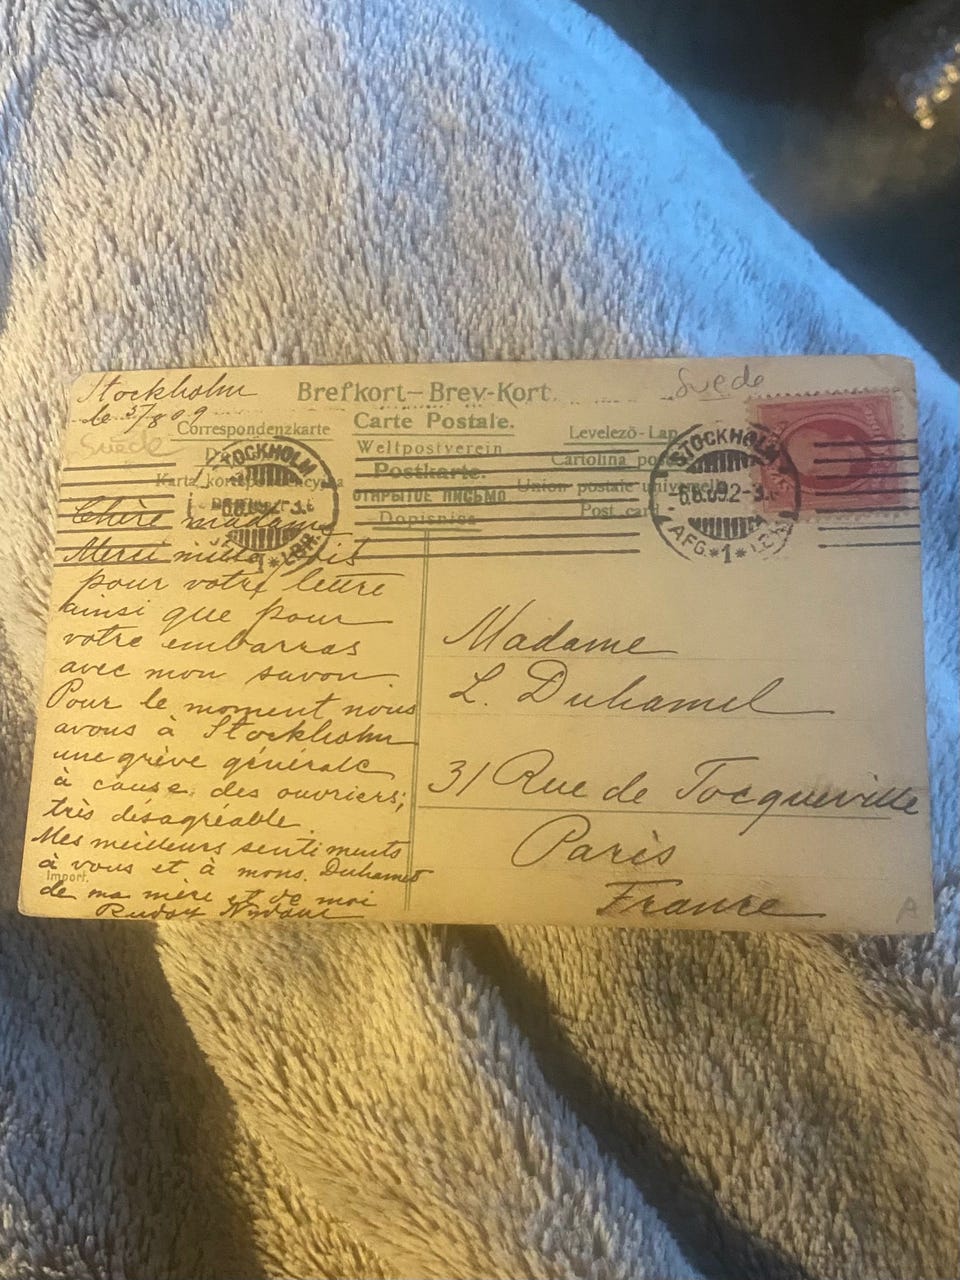 Stockholm
le 5/8 09
Suède
Brefkort–Brev-Kort.
Suede
Carte Postale.
Correspondenzkarte
Weltpostverein
Levelező-Lap
Postkarte.
Cartolina
Karta
ОТКРЫТОЕ ПИСЬМО
Union postale universelle
Dopisnice
Post card
STOCKHOLM
6.8.09
STOCKHOLM
6.8.09.2-3
AFG.*1*
Chère madame
Merci mille
pour votre lettre
ainsi que pour
votre embarras
avec mon savon.
Pour le moment nous
avons à Stockholm
une grève générale
à cause des ouvriers;
très désagréable.
Mes meilleurs sentiments
à vous et à mons. Duhamel
de ma mère et de moi
Import.
Madame
L. Duhamel
31 Rue de Tocqueville
Paris
France
A